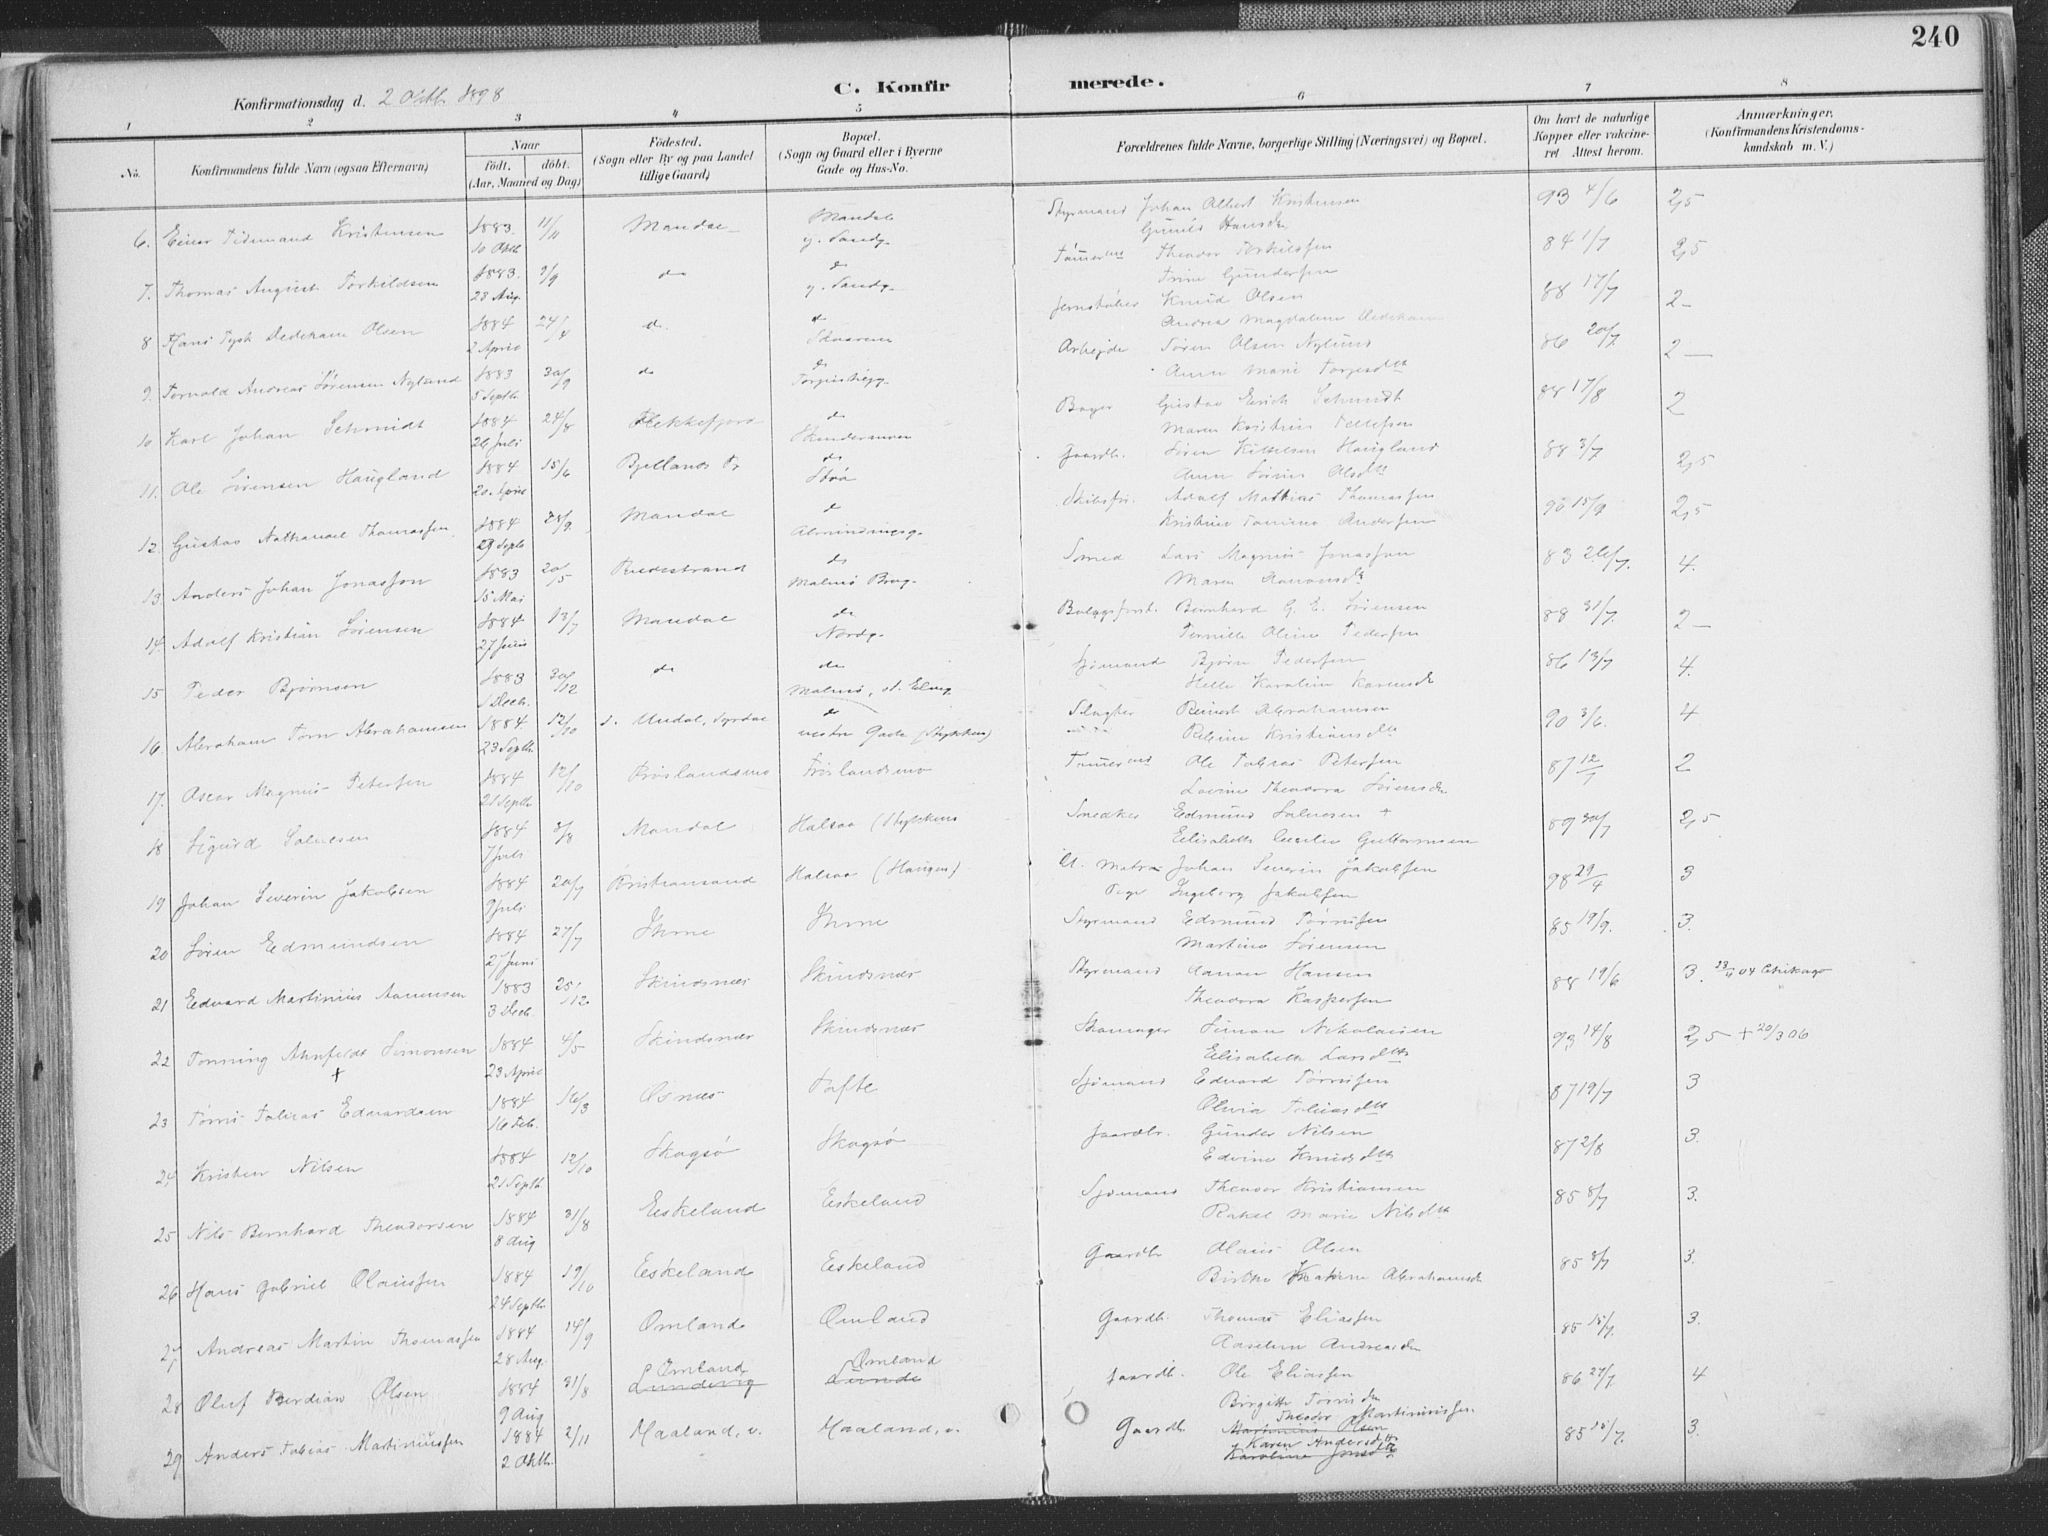 240
C. Konfirmerede.
Konfirmationsdag d. 2 Oktb. 1898
1 2 3 4 5 6 7 8
No. Konfirmandens fulde Navn (ogsaa Efternavn) Naar født. døbt. (Aar, Maaned og Dag) Fødested. (Sogn eller By og paa Landet tillige Gaard) Bopæl. (Sogn og Gaard eller i Byerne Gade og Hus-No. Forældrenes fulde Navne, borgerlige Stilling (Næringsvei) og Bopæl. Om havt de naturlige Kopper eller vakcineret Attest herom. Anmærkninger. (Konfirmandens Kristendomskundskab m. V.)
6. Einar Tidemand Kristensen 1883 10 Oktb. 11/11 Mandal Mandal g. Sandg. Styrmand Johan Albert Kristensen Gunild Hansd. 93 4/6 2,5
7. Thomas August Torkildsen 1883 28 Aug. 9/9 do do g. Sandg. Tømmermd Theodor Torkildsen Trine Gundersen 84 1/7 2,5
8 Hans Tysk Dedekam Olsen 1884 2 April 24/4 do do Skværen Jernstøber Knud Olsen Andrea Magdalene Dedekam 88 17/7 2
9. Torvald Andreas Sørensen Nylund 1883 5 Septb. 30/9 do do Arbejder Søren Olsen Nylund Anne Marie Torjesdtr 86 20/7 2
10 Karl Johan Schmidt 1884 26 Juli 24/8 Flekkefjord do Bager Gustav Erich Schmidt Maren Kristine Tellefsen 88 17/8 2
11. Ole Sørensen Haugland 1884 20 April 15/6 Bjelland do Gaardb. Søren Kittelsen Haugland Anne Sørine Olsdtr 88 3/7 2,5
12 Gustav Nathanael Thomassen 1884 29 Septb. 28/9 Mandal do Almindingsg. Skibsfør. Adolf Mathias Thomassen Kristine Tomine Andersen 90 15/9 2,5
13. Anders Johan Jonassen 1883 15 Mai 20/5 do Malmø Brug Smed Lars Magnus Jonasson Maren Aanonsdtr 83 26/7 4.
14 Adolf Kristian Sørensen 1884 27 Juni 13/7 Mandal do Nordg. Bernhard G. E. Sørensen Pernille Oline Pedersen 88 31/7 2
15 Peder Bjørnsen 1883 1 Decb. 30/12 do do Malmø, Sjømand Bjørn Pedersen Helle Karoline Karensdtr 86 13/7 4.
16 Abraham Torn Abrahamsen 1884 23 Septb. 12/10 s. Undal, do vestre Gade Slagter Reinert Abrahamsen Kristiansdtr 90 3/6 4
17. Oscar Magnus Petersen 1884 21 Septb. 12/10 Frøslandsmo Frøslandsmo Tømmermd Ole Tobias Petersen Lovine Theodora Sørensd. 87 12/7 2
18 Sigurd Salvesen 1884 7 Juli 3/8 Mandal Halsaa Snedker Edmund Salvesen + Elisabeth Cecilie Guttormsen 89 30/7 2,5
19 Johan Severin Jakobsen 1884 9 Juli 20/7 Kristiansand Halsaa (Haugen) Johan Severin Jakobsen Ingeborg Jakobsen 98 29/4 3
20 Søren Edmundsen 1884 27 Juni 27/7 Ihme Ihme Styrmand Edmund Tørrisen Martine Sørensen 85 19/9 3.
21 Edvard Martinius Aanensen 1883 3 Decb. 25/12 Skindsnæs Skindsnæs Styrmand Aanon Hansen Theodora Kaspersen 88 19/6 3. 23/6 04 Chikago
22 Tønning Ahnfeldt Simonsen + 1884 23 April 4/5 Skindsnæs Skindsnæs Skomager Simon Nikolaisen Elisabeth Larsdtr 93 14/8 2,5 + 20/3 06
23 Tørris Tobias Edvardsen 1884 16 Feb. 16/3 Osnes Tofte Sjømand Edvard Tørrisen Olivia Tobiasdtr 87 19/7 3
24 Kristen Nilsen 1884 21 Septb. 12/10 Skogsø Skogsø Gaardbr. Gunder Nilsen Edvine Knudsdtr 87 2/8 3.
25 Nils Bernhard Theodorsen 1884 8 Aug 31/8 Eskeland Eskeland Sjømand Theodor Kristiansen Rakel Marie Nilsdtr 85 8/7 3.
26 Hans Gabriel Olaussen 1884 24 Septb. 19/10 Eskeland Eskeland Gaardbr Olaus Olsen Birthe Katrine Abrahamsd. 85 8/7 3.
27 Andreas Martin Thomassen 1884 28 Aug. 14/9 Omland Omland Gaardb. Thomas Eliassen Aaseline Andreasd. 85 15/7. 3.
28 Oluf Berdian Olsen 1884 9 Aug 31/8 Omland Lundevig Omland Lunde Gaardb. Ole Eliassen Birgitte Tørrisd. 86 27/7. 4
29 Anders Tobias Martiniussen 1884 2 Oktb. 2/11 Haaland, v. Haaland, v. Gaardb. Theodor Martiniussen Martinius Olsen Karen Andersdtr Karoline Jonsdtr 85 15/7. 3.